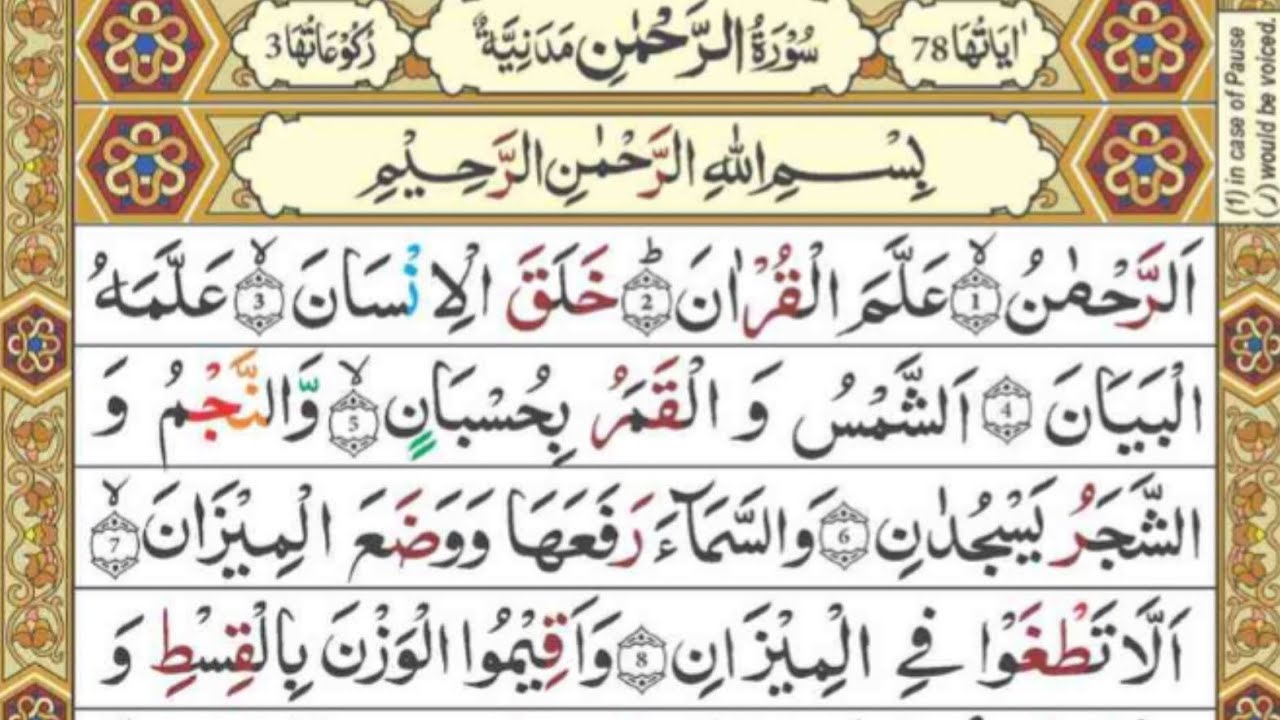 اٰيَاتُهَا 78 سُوْرَةُ الرَّحْمٰنِ مَدَنِيَّةٌ رُكُوْعَاتُهَا 3
بِسْمِ اللهِ الرَّحْمٰنِ الرَّحِيْمِ
اَلرَّحْمٰنُ ۙ 1 عَلَّمَ الْقُرْاٰنَ ؕ 2 خَلَقَ الْاِنْسَانَ ۙ 3 عَلَّمَهُ
الْبَيَانَ 4 اَلشَّمْسُ وَ الْقَمَرُ بِحُسْبَانٍ ۙ 5 وَّالنَّجْمُ وَ
الشَّجَرُ يَسْجُدٰنِ 6 وَالسَّمَآءَ رَفَعَهَا وَوَضَعَ الْمِيْزَانَ ۙ 7
اَلَّا تَطْغَوْا فِي الْمِيْزَانِ 8 وَاَقِيْمُوا الْوَزْنَ بِالْقِسْطِ وَ
(1) in case of Pause
(ر) would be voiced.